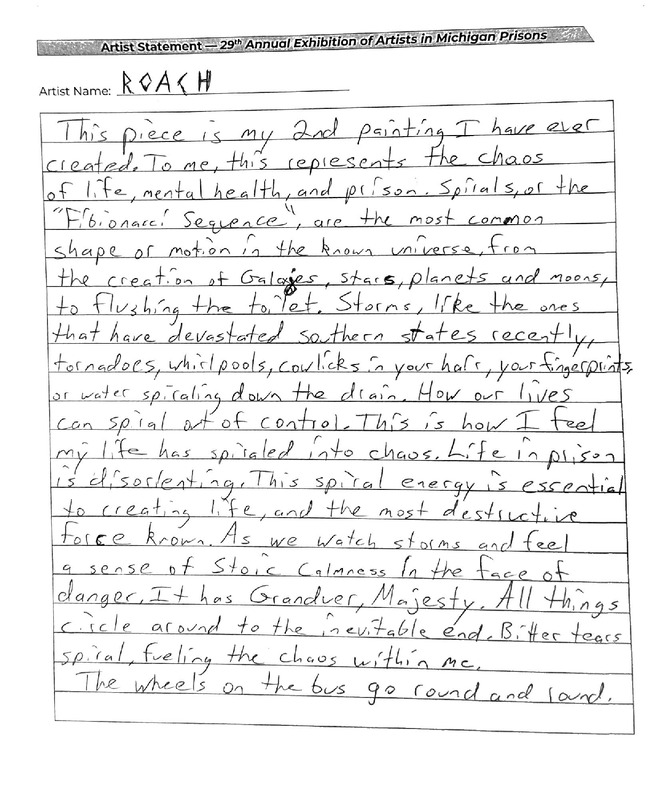 Artist Statement — 29th Annual Exhibition of Artists in Michigan Prisons
Artist Name: ROACH
This piece is my 2nd painting I have ever
created. To me, this represents the chaos
of life, mental health, and prison. Spirals, or the
"Fibionacci Sequence", are the most common
shape or motion in the known universe, from
the creation of Galaxies, stars, planets and moons,
to flushing the toilet. Storms, like the ones
that have devastated southern states recently,
tornadoes, whirlpools, cowlicks in your hair, your fingerprints,
or water spiraling down the drain. How our lives
can spiral out of control. This is how I feel
my life has spiraled into chaos. Life in prison
is disorienting. This spiral energy is essential
to creating life, and the most destructive
force known. As we watch storms and feel
a sense of Stoic Calmness in the face of
danger. It has Granduer, Majesty. All things
circle around to the inevitable end. Bitter tears
spiral, fueling the chaos within me.
The wheels on the bus go round and round.